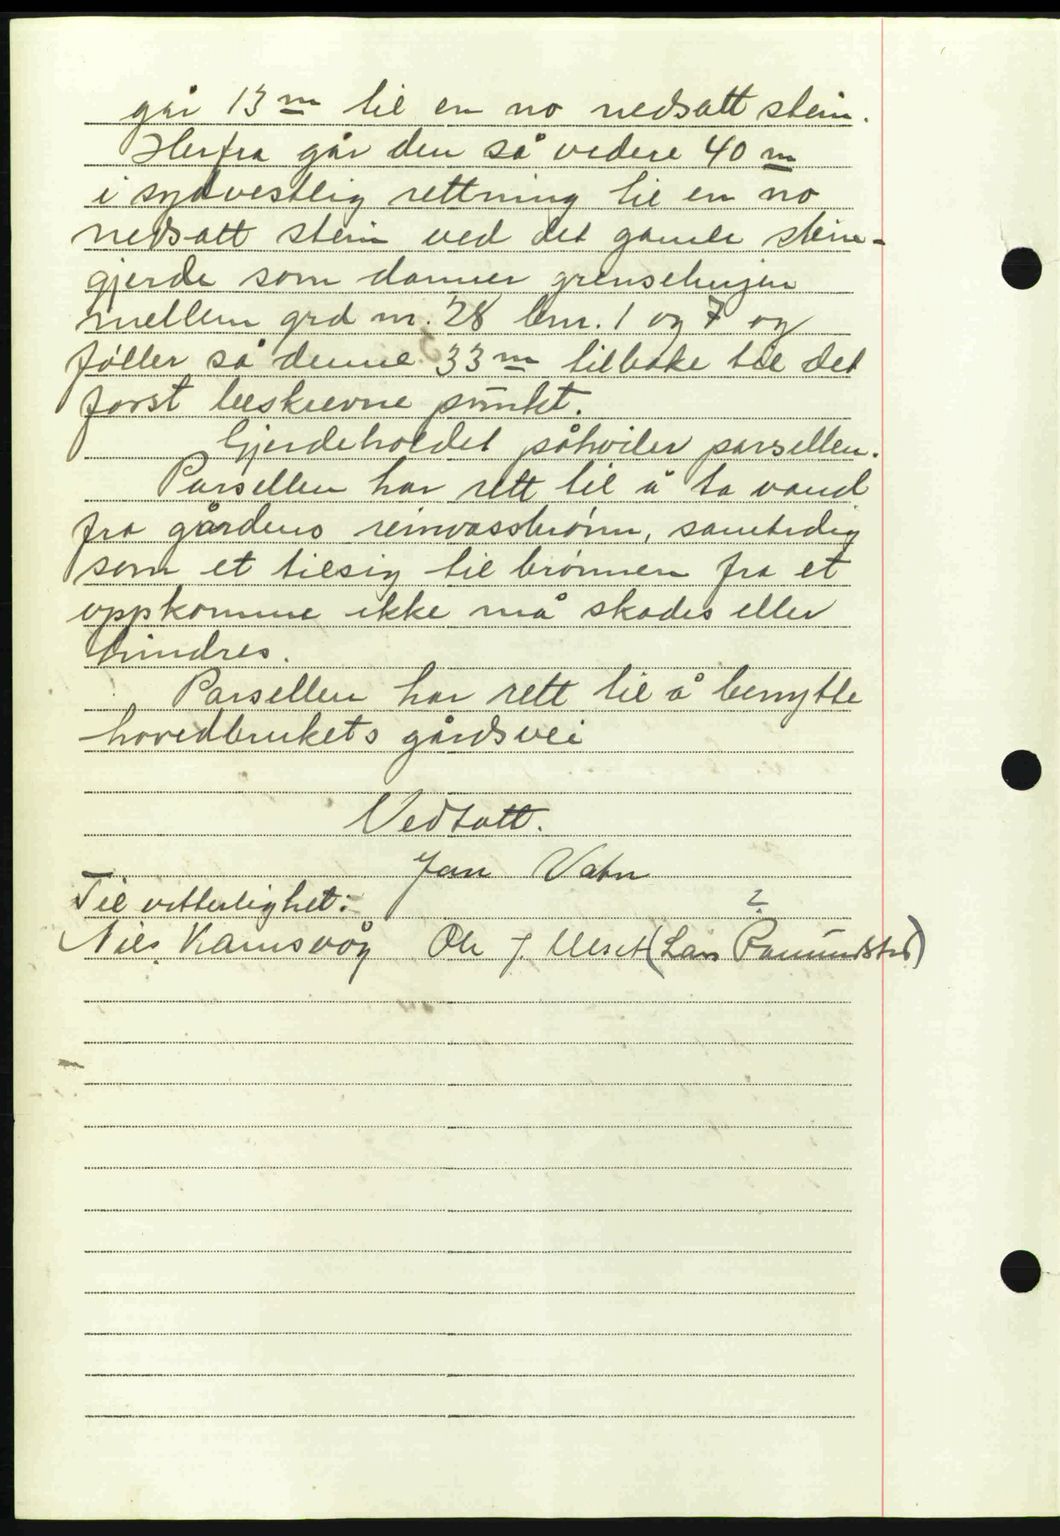 går 13 m til en no nedsatt stein.
Herfra går den så videre 40 m
i sydvestlig rettning til en no
nedsatt stein ved det gamle stein-
gjerde som danner grenselinjen
mellem grd nr. 28 bnr. 1 og 7 og
føller så denne 33 m tilbake til det
først beskrevne punkt.
Gjerdeholdet påhviler parsellen.
Parsellen har rett til å ta vand
fra gårdens reinvassbrønn, samtidig
som et tilsig til brønnen fra et
oppkomme ikke må skades eller
hindres.
Parsellen har rett til å benytte
hovedbrukets gårdsvei
Vedtatt.
Jan Vatn
Til vitterlighet:
?
Nils Ramsvåg Ole J. Ulset (Lars